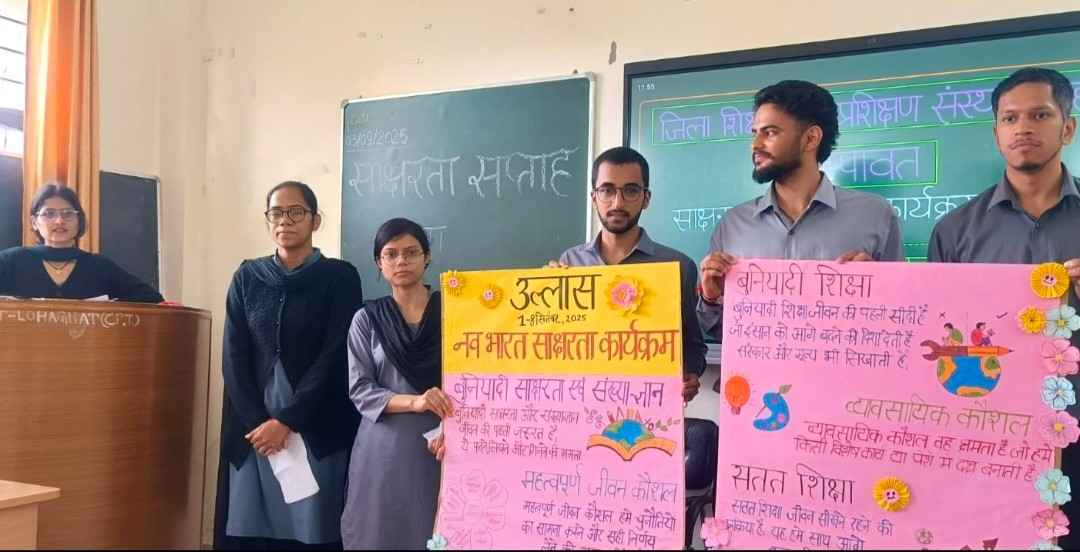 03/09/2025
साक्षरता सप्ताह
11:55
जिला प्रशिक्षण
T-LOHAGHAT(C.P.T)
उल्लास
1-8 सितंबर, 2025
नव भारत साक्षरता कार्यक्रम
बुनियादी साक्षरता एवं संख्याज्ञान
बुनियादी साक्षरता और संख्याज्ञान
जीवन की पहली जरूरत है,
महत्वपूर्ण जीवन कौशल
महत्वपूर्ण जीवन कौशल हमें चुनौतियों
का सामना करने और सही निर्णय
बुनियादी शिक्षा
बुनियादी शिक्षा जीवन की पहली सीढ़ी है
जो इंसान को आगे बढ़ने की दिशा देती है
संस्कार और मूल्य भी सिखाती है,
व्यावसायिक कौशल
व्यावसायिक कौशल वह क्षमता है जो हमें
किसी विशेष कार्य या पेशे में दक्ष बनाती है
सतत शिक्षा
सतत शिक्षा जीवन सीखते रहने की
प्रक्रिया है, यह हमें साथ आगे